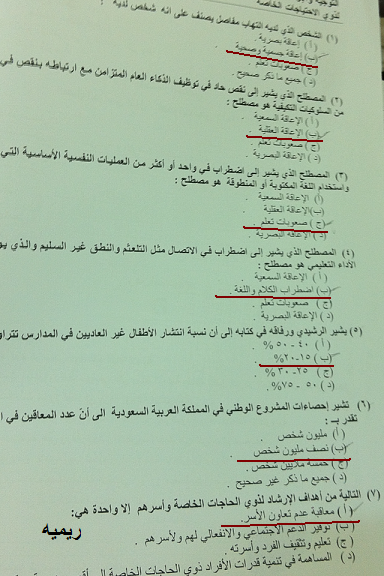 التوجيه
لذوي الاحتياجات الخاصة
(١) الشخص الذي لديه التهاب مفاصل يصنف على انه شخص لديه :
(أ) إعاقة بصرية .
(ب) إعاقة جسمية وصحية
(ج) صعوبات تعلم .
(د) جميع ما ذكر صحيح .
(٢) المصطلح الذي يشير إلى نقص حاد في توظيف الذكاء العام المتزامن مع ارتباطه بنقص في
من السلوكيات التكيفية هو مصطلح :
(أ) الإعاقة السمعية .
(ب) الإعاقة العقلية .
(ج) صعوبات تعلم .
(د) الإعاقة البصرية .
(٣) المصطلح الذي يشير إلى اضطراب في واحد أو أكثر من العمليات النفسية الأساسية التي
واستخدام اللغة المكتوبة أو المنطوقة هو مصطلح :
(أ) الإعاقة السمعية .
(ب) الإعاقة العقلية .
(ج) صعوبات تعلم .
(د) الإعاقة البصرية .
(٤) المصطلح الذي يشير إلى اضطراب في الاتصال مثل التلعثم والنطق غير السليم والذي
الأداء التعليمي هو مصطلح :
(أ) الإعاقة السمعية .
(ب) اضطراب الكلام واللغة .
(ج) صعوبات تعلم .
(د) الإعاقة البصرية .
(٥) يشير الرشيدي ورفاقه في كتابه إلى أن نسبة انتشار الأطفال غير العاديين في المدارس
(أ) ٤٠ - ٥٠ % .
(ب) ١٥-٢٠% .
(ج) ٢٥-٣٠ % .
(د) ٥٠ - ٧٥% .
(٦) تشير إحصاءات المشروع الوطني في المملكة العربية السعودية الى أن عدد المعاقين في
تقدر بـ :
(أ) مليون شخص .
(ب) نصف مليون شخص .
(ج) خمسة ملايين شخص .
(د) جميع ما ذكر غير صحيح .
(٧) التالية من أهداف الإرشاد لذوي الحاجات الخاصة وأسرهم إلا واحدة هي:
(أ) معاقبة عدم تعاون الأسر .
(ب) توفير الدعم الاجتماعي والانفعالي لهم ولأسرهم .
(ج) تعليم وتثقيف الفرد وأسرته .
(د) المساهمة في تنمية قدرات الأفراد ذوي الحاجات الخاصة
ريميه